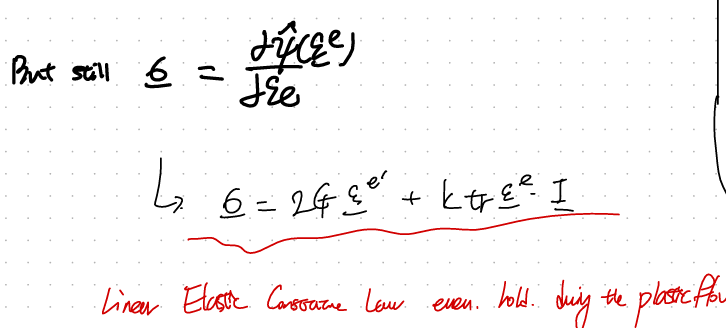 But still σ = ∂ψ̂(ε^e) / ∂ε^e
↳ σ = 2G ε^e' + k tr ε^e · I
Linear Elastic Constitutive Law even. hold. during the plastic flow